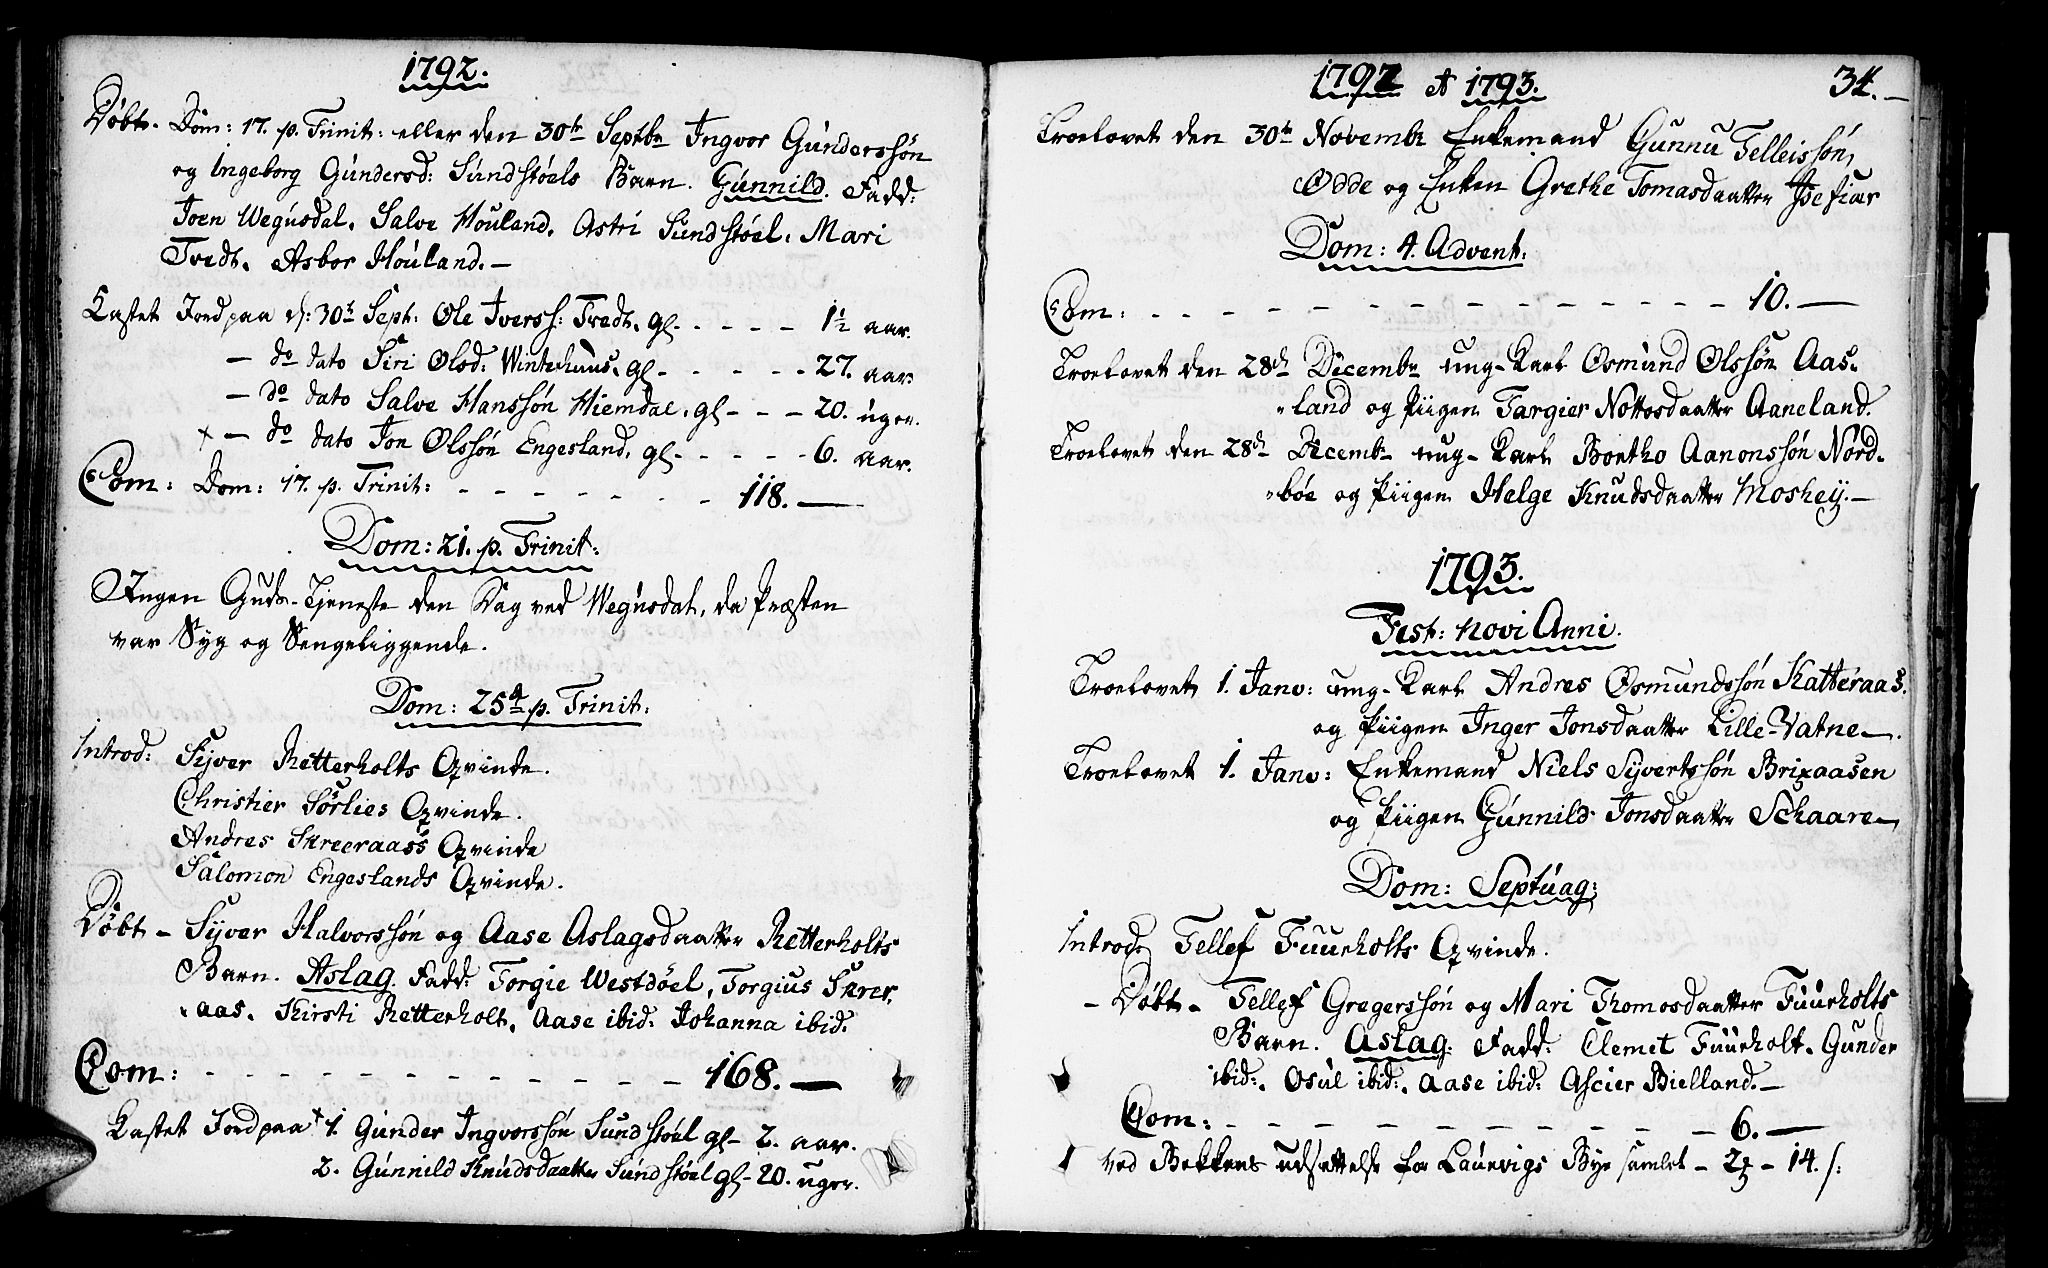 1792.
Döbt. Dom: 17. p. Trinit: eller den 30te Septbr Ingvor Gúnderssön
og Ingeborg Gúndersd: Súndstöels Barn. Gúnnild. Fadd:
Joen Wegúsdal. Salve Houland. Astri Sundstöel. Mari
Tredt. Asbor Höuland.—
Kastet Jord paa d: 30t Sept: Ole Iverss: Tredt. gl - - - - - 1½ aar.
— do dato Siri Olsd: Winterhuus. gl - - - - - 27. aar.
— do dato Salve Hanssön Hiemdal. gl - - - 20. uger.
+ — do dato Jon Olssön Engesland. gl - - - - - 6. aar.
Com: Dom: 17. p. Trinit: - - - - - - - 118. —
Dom: 21. p. Trinit:
Ingen Guds-Tjeneste den Dag ved Wegúsdal, da Præsten
var Syg og Sengeliggende.
Dom: 25de p. Trinit:
Introd: Syver Retterholts Qvinde.
Christier Sörlies Qvinde.
Andres Skreeraass Qvinde
Salomon Engeslands Qvinde.
Döbt - Syver Halvorssön og Aase Aslagsdaatter Retterholts
Barn. Aslag. Fadd: Torgie Westdöel, Torgius Skrer,
aas. Kirsti Retterholt. Aase ibid: Johanna ibid:
Com: - - - - - - - - - - - - 168. —
Kastet Jord paa + 1. Gunder Ingvorssön Sundstöel gl - 2. aar.
2. Gúnnild Knúdsdaatter Súndstöel gl - 20. uger.
1792 & 1793. 34.—
Troelovet den 30te Novembr Enkemand Gunnu Telleissön,
Odde og Enken Grethe Tomasdaatter Isefiær
Dom: 4. Advent:
Com: - - - - - - - - - - - - - 10. —
Troelovet den 28de Decembr ung-Karl Osmund Olssön Aas-
land og Piigen Targier Nottosdaatter Aaneland.
Troelovet den 28de Decembr ung-Karl Bontho Aanonssön Nord-
böe og Piigen Helge Knudsdaatter Moshey.—
1793.
Fest: novi Anni.
Troelovet 1. Janv: ung-Karl Andres Osmundssön Katteraas.
og Piigen Inger Jonsdaatter Lille-Vatne.
Troelovet 1. Janv: Enkemand Niels Syvertssön Brixaasen
og Piigen Gúnnild Jonsdaatter Schaare
Dom: Septúag:
Introd: Tellef Fuurholts Qvinde.
- Döbt - Tellef Gregerssön og Mari Thomosdaatter Fuurholts
Barn. Aslag: Fadd: Clemet Fuurholt. Gunder
ibid:. Osúl ibid:. Aase ibid: Ascier Bielland.—
Com: - - - - - - - - - - - 6. —
Ved Bekkens udsættelse for Laúrvigs Bye samlet - 2 - 14. s: